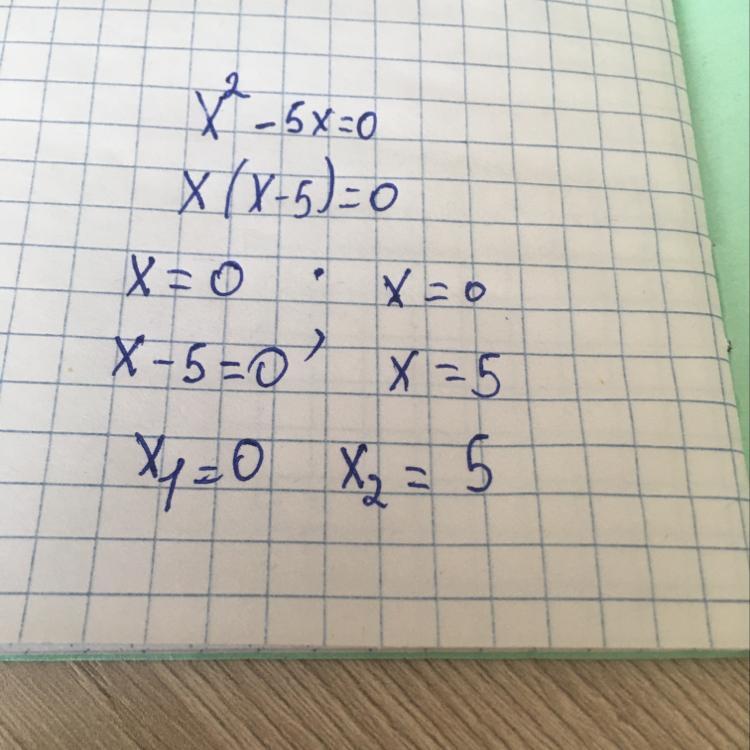 x² - 5x = 0
x(x-5) = 0
x = 0 ; x = 0
x - 5 = 0 x = 5
x₁ = 0 x₂ = 5